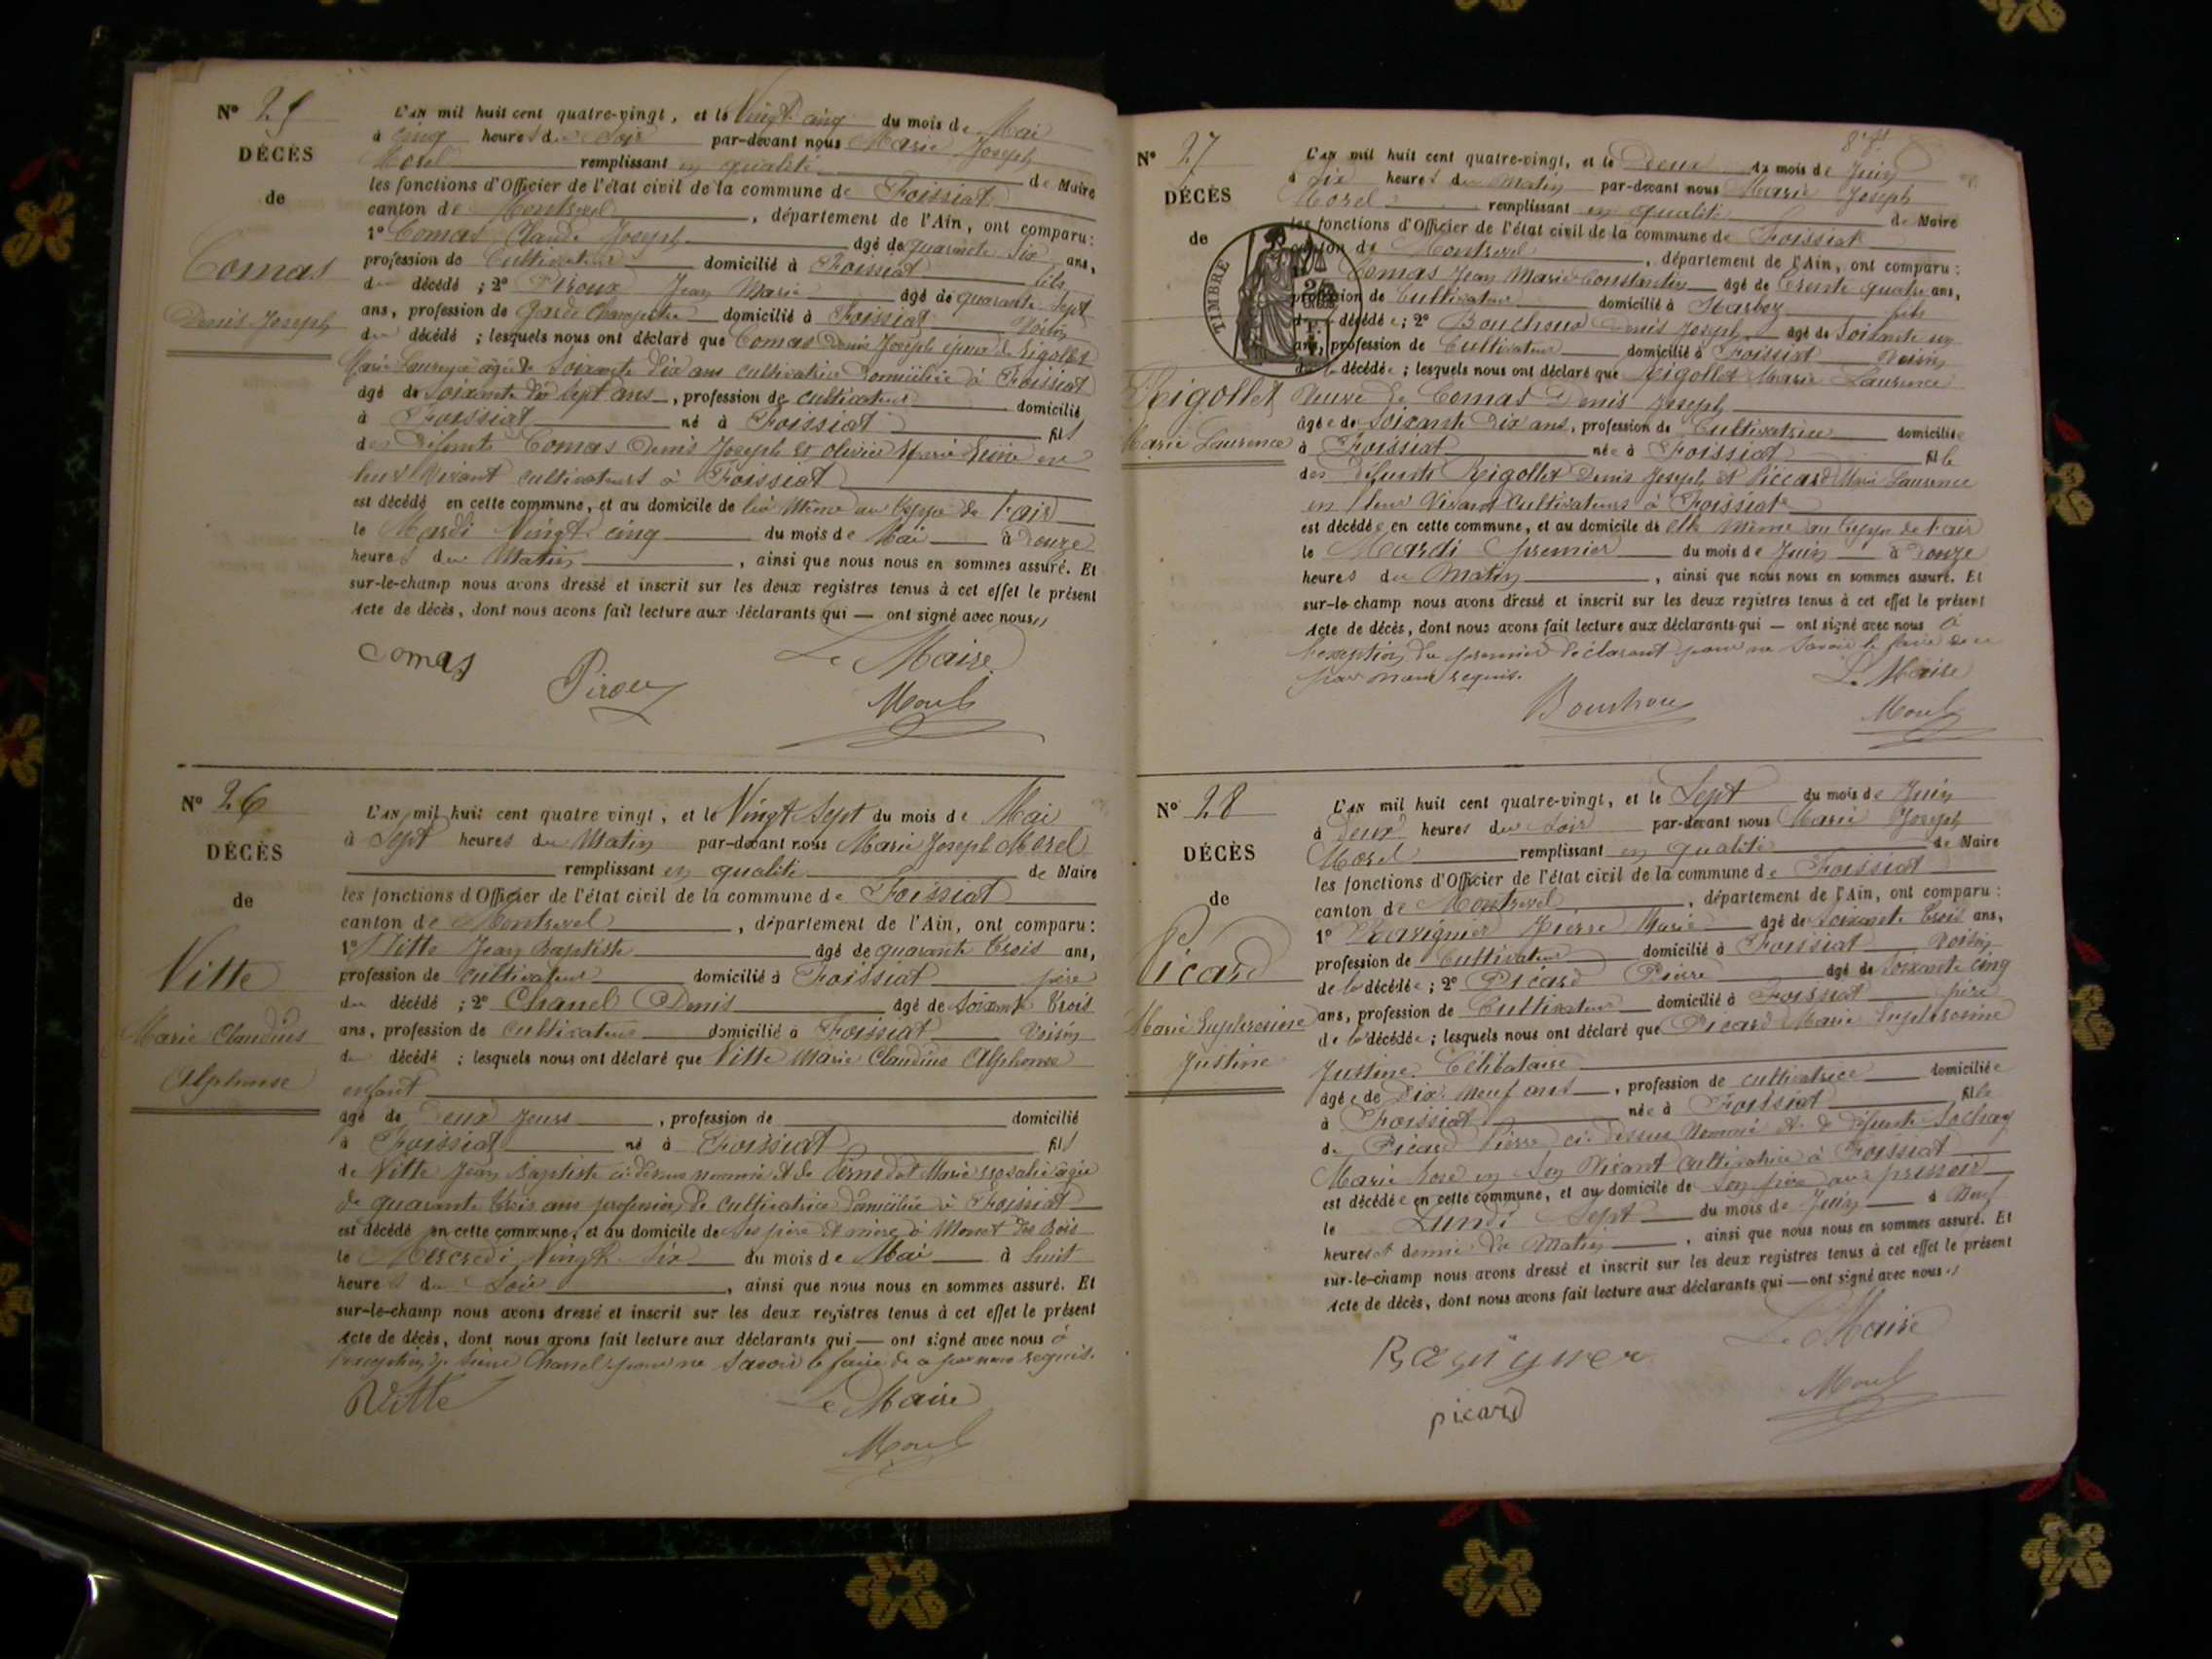 Nº 25
DÉCÈS
de
Comas
Denis Joseph
L'AN mil huit cent quatre-vingt, et le Vingt cinq du mois de Mai
à cinq heures du Soir par-devant nous Marie Joseph
Morel remplissant en qualité de Maire
les fonctions d'Officier de l'état civil de la commune de Foissiat
canton de Montrevel, département de l'Ain, ont comparu:
1º Comas Claude Joseph âgé de quarante Six ans,
profession de Cultivateur domicilié à Foissiat fils
du décédé ; 2º Piroux Jean Marie âgé de quarante Sept
ans, profession de Garde Champêtre domicilié à Foissiat Voisin
du décédé ; lesquels nous ont déclaré que Comas Denis Joseph époux de Rigollet
Marie Laurence âgée de Soixante Dix ans cultivatrice domiciliée à Foissiat
âgé de Soixante Dix Sept ans, profession de cultivateur domicilié
à Foissiat né à Foissiat fils
des Défunts Comas Denis Joseph et Olivier Marie Reine en
leur Vivant cultivateurs à Foissiat
est décédé en cette commune, et au domicile de lui Même au
le Mardi Vingt cinq du mois de Mai à Douze
heures du Matin, ainsi que nous nous en sommes assuré. Et
sur-le-champ nous avons dressé et inscrit sur les deux registres tenus à cet effet le présent
Acte de décès, dont nous avons fait lecture aux déclarants qui — ont signé avec nous
Comas
Piroux
Le Maire
Morel
Nº 26
DÉCÈS
de
Vitte
Marie Claudius
Alphonse
L'AN mil huit cent quatre vingt, et le Vingt Sept du mois de Mai
à Sept heures du Matin par-devant nous Marie Joseph Morel
remplissant en qualité de Maire
les fonctions d'Officier de l'état civil de la commune de Foissiat
canton de Montrevel, département de l'Ain, ont comparu:
1º Vitte Jean Baptiste âgé de quarante trois ans,
profession de Cultivateur domicilié à Foissiat père
du décédé ; 2º Chanel Denis âgé de Soixante trois
ans, profession de Cultivateur domicilié à Foissiat Voisin
du décédé ; lesquels nous ont déclaré que Vitte Marie Claudius Alphonse
enfant
âgé de Deux Jours, profession de domicilié
à Foissiat né à Foissiat fils
de Vitte Jean Baptiste ci-dessus nommé et de Pernodet Marie Rosalie âgée
de quarante trois ans profession de cultivatrice domiciliée à Foissiat
est décédé en cette commune, et au domicile de Ses père et mère à des Bois
le Mercredi Vingt Six du mois de Mai à huit
heures du Soir, ainsi que nous nous en sommes assuré. Et
sur-le-champ nous avons dressé et inscrit sur les deux registres tenus à cet effet le présent
Acte de décès, dont nous avons fait lecture aux déclarants qui — ont signé avec nous à
l'exception du Chanel pour ne Savoir le faire de ce par nous requis.
Vitte
Le Maire
Morel
Nº 27
DÉCÈS
de
TIMBRE
Rigollet
Marie Laurence
L'AN mil huit cent quatre-vingt, et le Deux du mois de Juin
à Dix heures du Matin par-devant nous Marie Joseph
Morel remplissant en qualité de Maire
les fonctions d'Officier de l'état civil de la commune de Foissiat
canton de Montrevel, département de l'Ain, ont comparu:
Comas Jean Marie Constantin âgé de Trente quatre ans,
profession de Cultivateur domicilié à Marboz fils
de la décédée ; 2º Bouchoux Denis Joseph âgé de Soixante un
ans, profession de Cultivateur domicilié à Foissiat Voisin
de la décédée ; lesquels nous ont déclaré que Rigollet Marie Laurence
Veuve de Comas Denis Joseph
âgée de Soixante Dix ans, profession de Cultivatrice domiciliée
à Foissiat née à Foissiat fille
des Défunts Rigollet Denis Joseph et Piccard Marie Laurence
en leur Vivant Cultivateurs à Foissiat
est décédée en cette commune, et au domicile de elle même au
le Mardi premier du mois de Juin à Douze
heures du Matin, ainsi que nous nous en sommes assuré. Et
sur-le-champ nous avons dressé et inscrit sur les deux registres tenus à cet effet le présent
Acte de décès, dont nous avons fait lecture aux déclarants qui — ont signé avec nous à
l'exception du premier déclarant pour ne Savoir le faire de ce
par nous requis.
Bouchoux
Le Maire
Morel
Nº 28
DÉCÈS
de
Picard
Marie Euphrosine
Justine
L'AN mil huit cent quatre-vingt, et le Sept du mois de Juin
à Deux heures du Soir par-devant nous Marie Joseph
Morel remplissant en qualité de Maire
les fonctions d'Officier de l'état civil de la commune de Foissiat
canton de Montrevel, département de l'Ain, ont comparu:
1º Pierre Marie âgé de Soixante trois ans,
profession de Cultivateur domicilié à Foissiat Voisin
de la décédée ; 2º Picard Pierre âgé de Soixante cinq
ans, profession de Cultivateur domicilié à Foissiat père
de la décédée ; lesquels nous ont déclaré que Picard Marie Euphrosine
Justine Célibataire
âgée de Dix Neuf ans, profession de cultivatrice domiciliée
à Foissiat née à Foissiat fille
de Picard Pierre ci-Dessus Nommé et de défunte Sochay
Marie Rose en Son Vivant Cultivatrice à Foissiat
est décédée en cette commune, et au domicile de Son père au pressoir
le Lundi Sept du mois de Juin à Neuf
heures et demie du Matin, ainsi que nous nous en sommes assuré. Et
sur-le-champ nous avons dressé et inscrit sur les deux registres tenus à cet effet le présent
Acte de décès, dont nous avons fait lecture aux déclarants qui — ont signé avec nous
picard
Le Maire
Morel